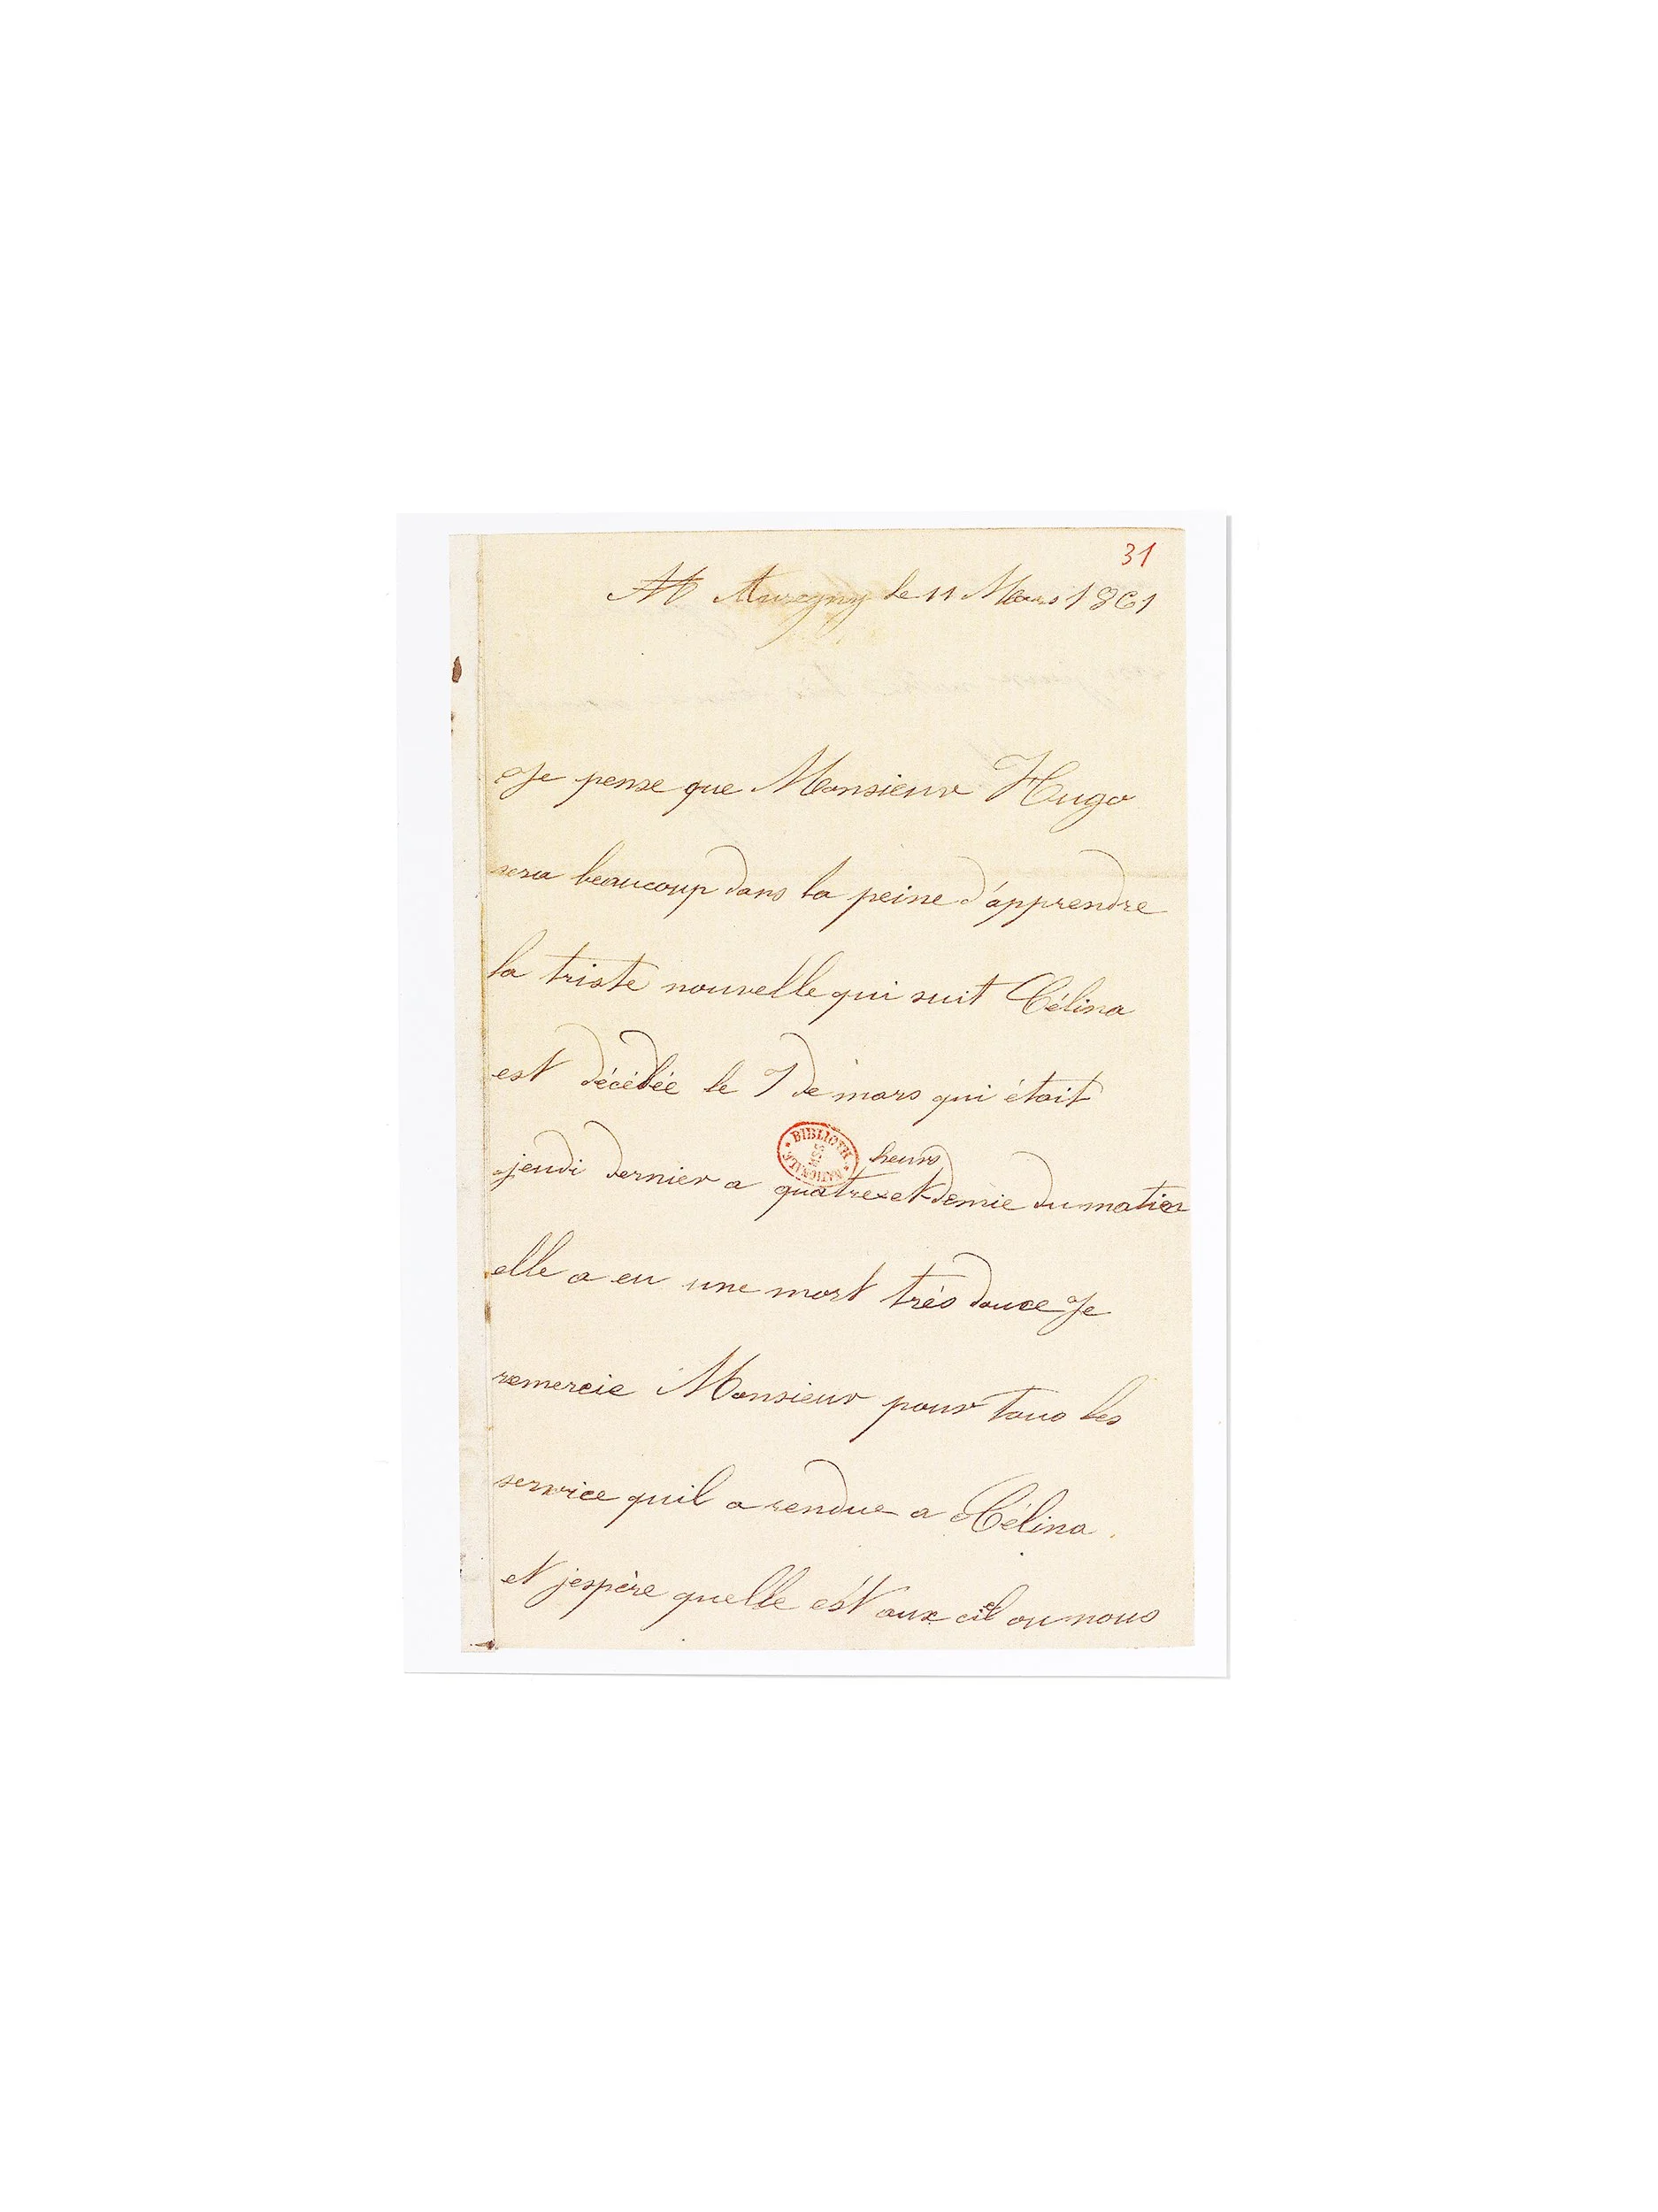 31
Auregny le 11 Mars 1861
Je pense que Monsieur Hugo
sera beaucoup dans la peine d'apprendre
la triste nouvelle qui suit Célina
est décédée le 7 de mars qui était
BIBLIOTH NATIONALE MSS
heurs
jeudi dernier a quatre et demie du matin
elle a eu une mort très douce Je
remercie Monsieur pour tous les
service quil a rendue a Célina.
et jespère quelle ést aux ciel ou nous